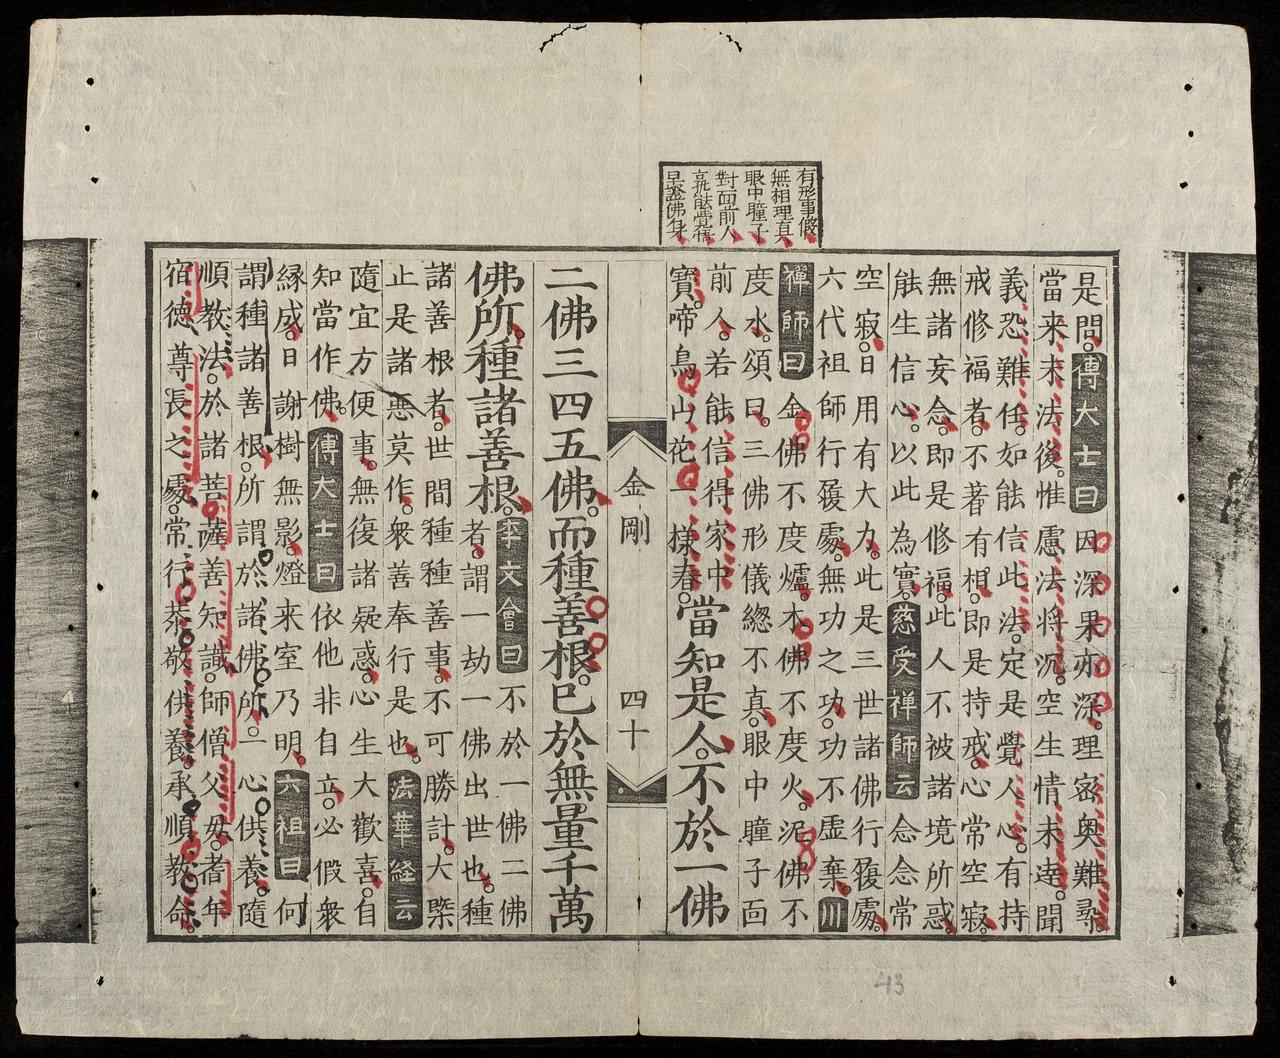 有形事假
無相理真
眼中瞳子
對面前人
能覺
早證佛身
是問。傅大士曰因深果亦深。理密奥難尋。
當来末法後。惟慮法将沉。空生情未達。聞
義恐難任。如能信此法。定是覺人心。有持
戒修福者。不著有相。即是持戒。心常空寂。
無諸妄念。即是修福。此人不被諸境所惑。
能生信心。以此為實。慈受禅師云念念常
空寂。日用有大力。此是三世諸佛行履處。
六代祖師行履處。無功之功。功不虚棄。川
禪師曰金佛不度爐。木佛不度火。泥佛不
度水。頌曰。三佛形儀緫不真。眼中瞳子面
前人。若能信得家中
寶。啼鳥山花一様春。當知是人。不於一佛
金剛 四十
二佛三四五佛。而種善根。已於無量千萬
佛所。種諸善根。李文會曰不於一佛二佛
者。謂一劫一佛出世也。種
諸善根者。世間種種善事。不可勝計。大槩
止是諸惡莫作。衆善奉行是也。法華経云
隨宜方便事。無復諸疑惑。心生大歡喜。自
知當作佛。傅大士曰依他非自立。必假衆
縁成。日謝樹無影。燈来室乃明。六祖曰何
謂種諸善根。所謂於諸佛所。一心供養。隨
順教法。於諸菩薩善知識。師僧父母。耆年
宿德。尊長之處。常行恭敬供養。承順教命。
43